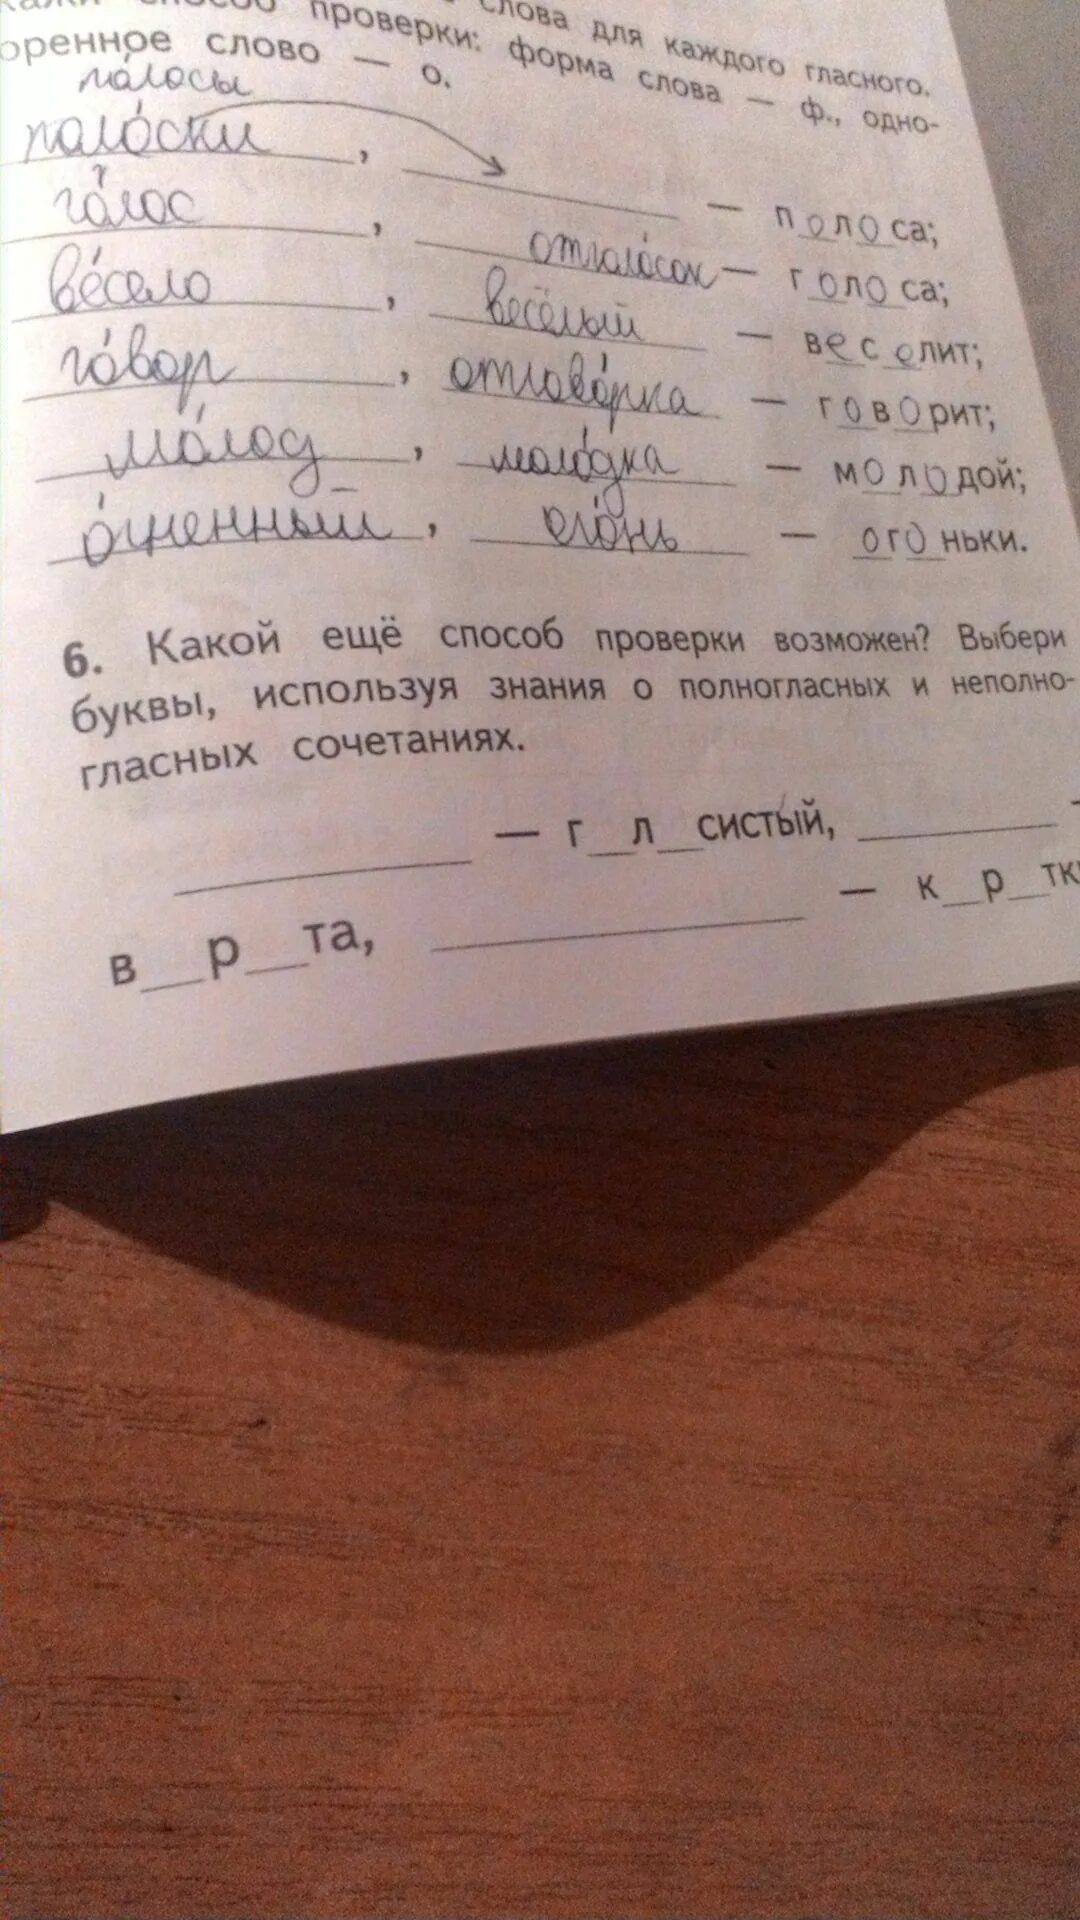 слова для каждого гласного.
способ проверки: форма слова — ф., одно-
оренное слово — о.
полосы
полоски, — полоса;
голос, отголосок — голоса;
весело, весёлый — веселит;
говор, отговорка — говорит;
молод, молодка — молодой;
огненный, огонь — огоньки.
6. Какой ещё способ проверки возможен? Выбери
буквы, используя знания о полногласных и неполно-
гласных сочетаниях.
— г__л__систый,
в__р__та, — к__р__тк